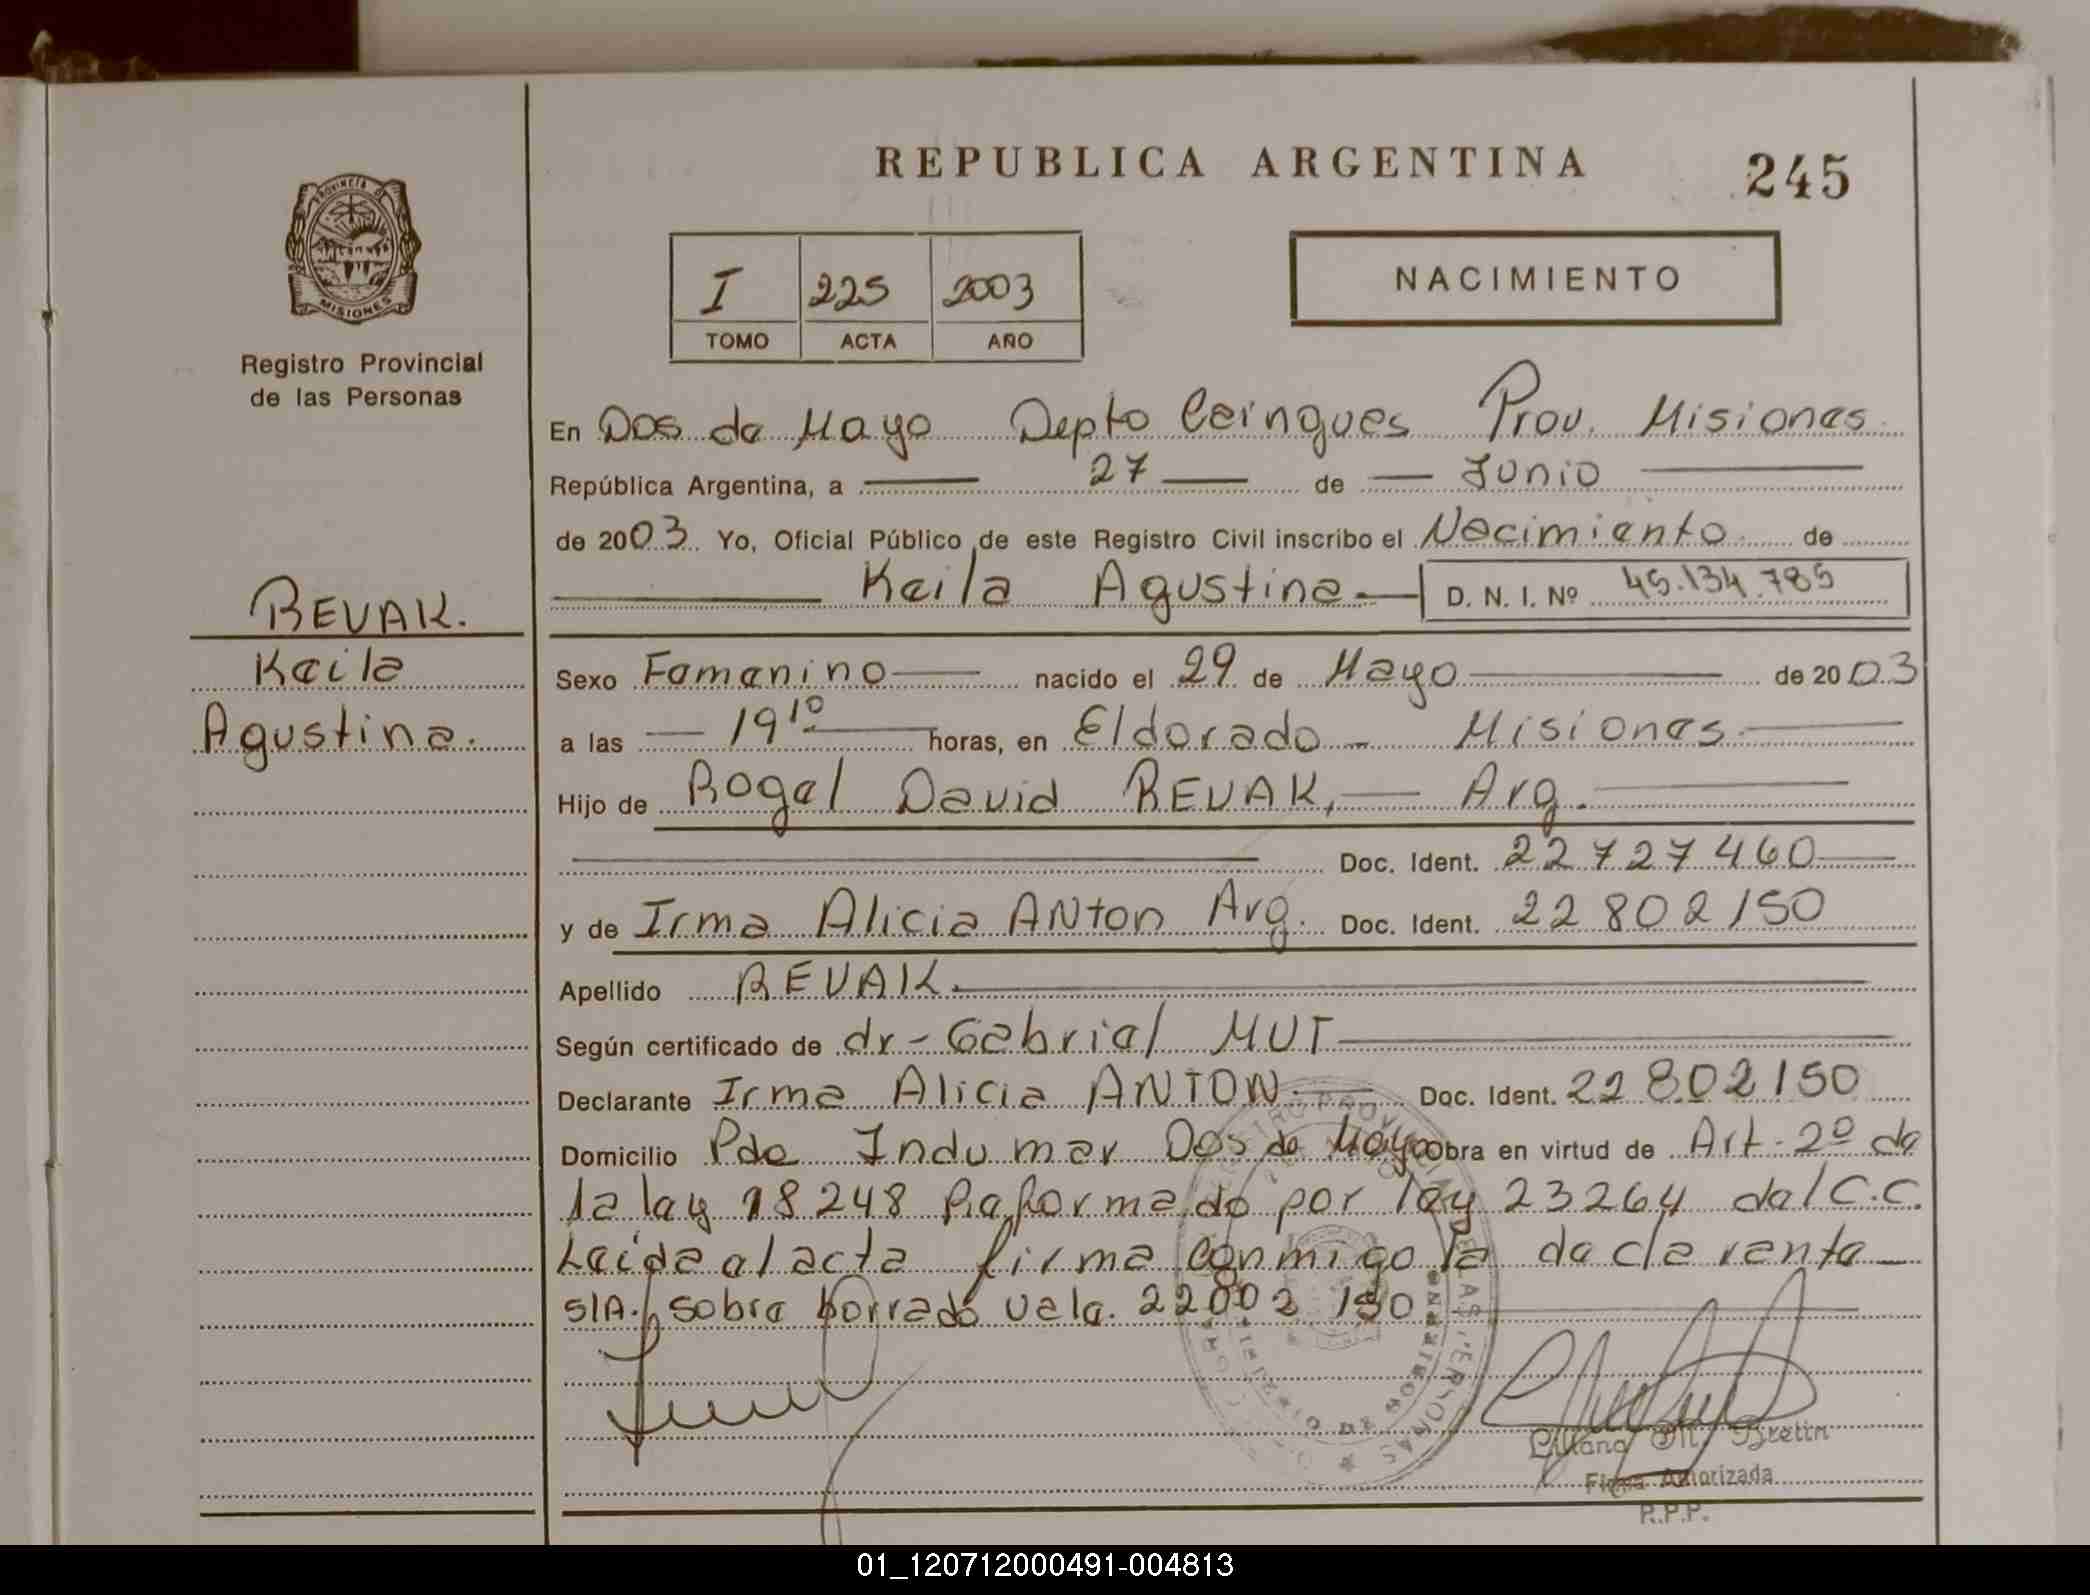 REPUBLICA ARGENTINA
245
PROVINCIA DE
MISIONES
Registro Provincial
de las Personas
I 225 2003
TOMO ACTA AÑO
NACIMIENTO
En Dos de Mayo Depto Caingues Prov. Misiones
República Argentina, a 27 de Junio
de 2003 Yo, Oficial Público de este Registro Civil inscribo el Nacimiento de
Keila Agustina D. N. I. Nº 45.134.785
REVAK.
Keila
Agustina.
Sexo Femenino nacido el 29 de Mayo de 2003
a las 19 10 horas, en Eldorado - Misiones
Hijo de Rogel David REVAK, Arg.
Doc. Ident. 22727460
y de Irma Alicia ANton Arg. Doc. Ident. 22802150
Apellido REVAK.
Según certificado de dr-Gabriel MUT
Declarante Irma Alicia ANTON. Doc. Ident. 22802150
Domicilio Pde Indumar Dos de Mayo obra en virtud de Art. 2º de
la ley 18248 Reformado por ley 23264 del C.C.
Leida el acta firma conmigo la declarente
S/A. sobre borrado vele. 22802150
Firma Autorizada
R.P.P.
01_120712000491-004813